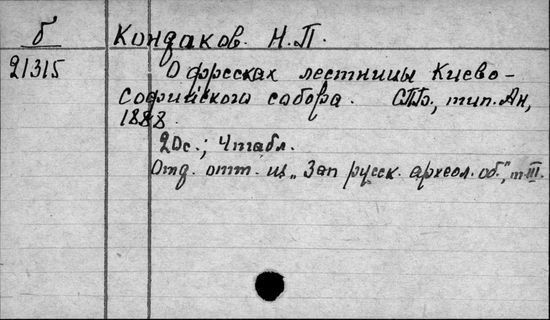 б Кондаков. Н.П.
21315 О фресках лестницы Киево-
Софийского собора. СПб, тип. Ан,
1888.
20с.; 4 табл.
Отд. отт. из „Зап русск. археол. об.", т. III.